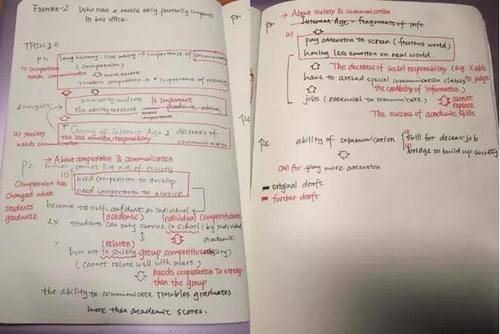 Exercise-2 Who then a movie only partially
in his office.
TPO 21.2.0
P1.
long history living importance of communication
(competition)
① competition
needs communication
more severe
modern competition importance of relating
university students
is important
The ability to relate academic ability
society
needs communication
County of Internet Age : decrease of
the less emotion/responsibility communication
P2. → About competition & communication
human cannot live out of society
Competition has
changed when
students
graduate
need competition to develop
need cooperation to survive
become too self-confident as individual
(academic) individual competitiveness
ex. students can only survive in school (by individual
academic
(relation)
but not in society group competitiveness
(cannot relate well with others)
Needs cooperation to streng-
then the group
the ability to communicate troubles graduates
more than academic scores.
→ About society & communication
Internet Age - fragments of info.
pay attention to screen (virtual world)
having less emotion on real world
The decrease of social responsibility
have to attend special communication classes to judge
the credibility of information)
jobs (essential to communicate) cannot
replace
The success of academic skills
P4. ability of communication skill for decent job
bridge to build up society
Call for pay more attention
original draft
further draft